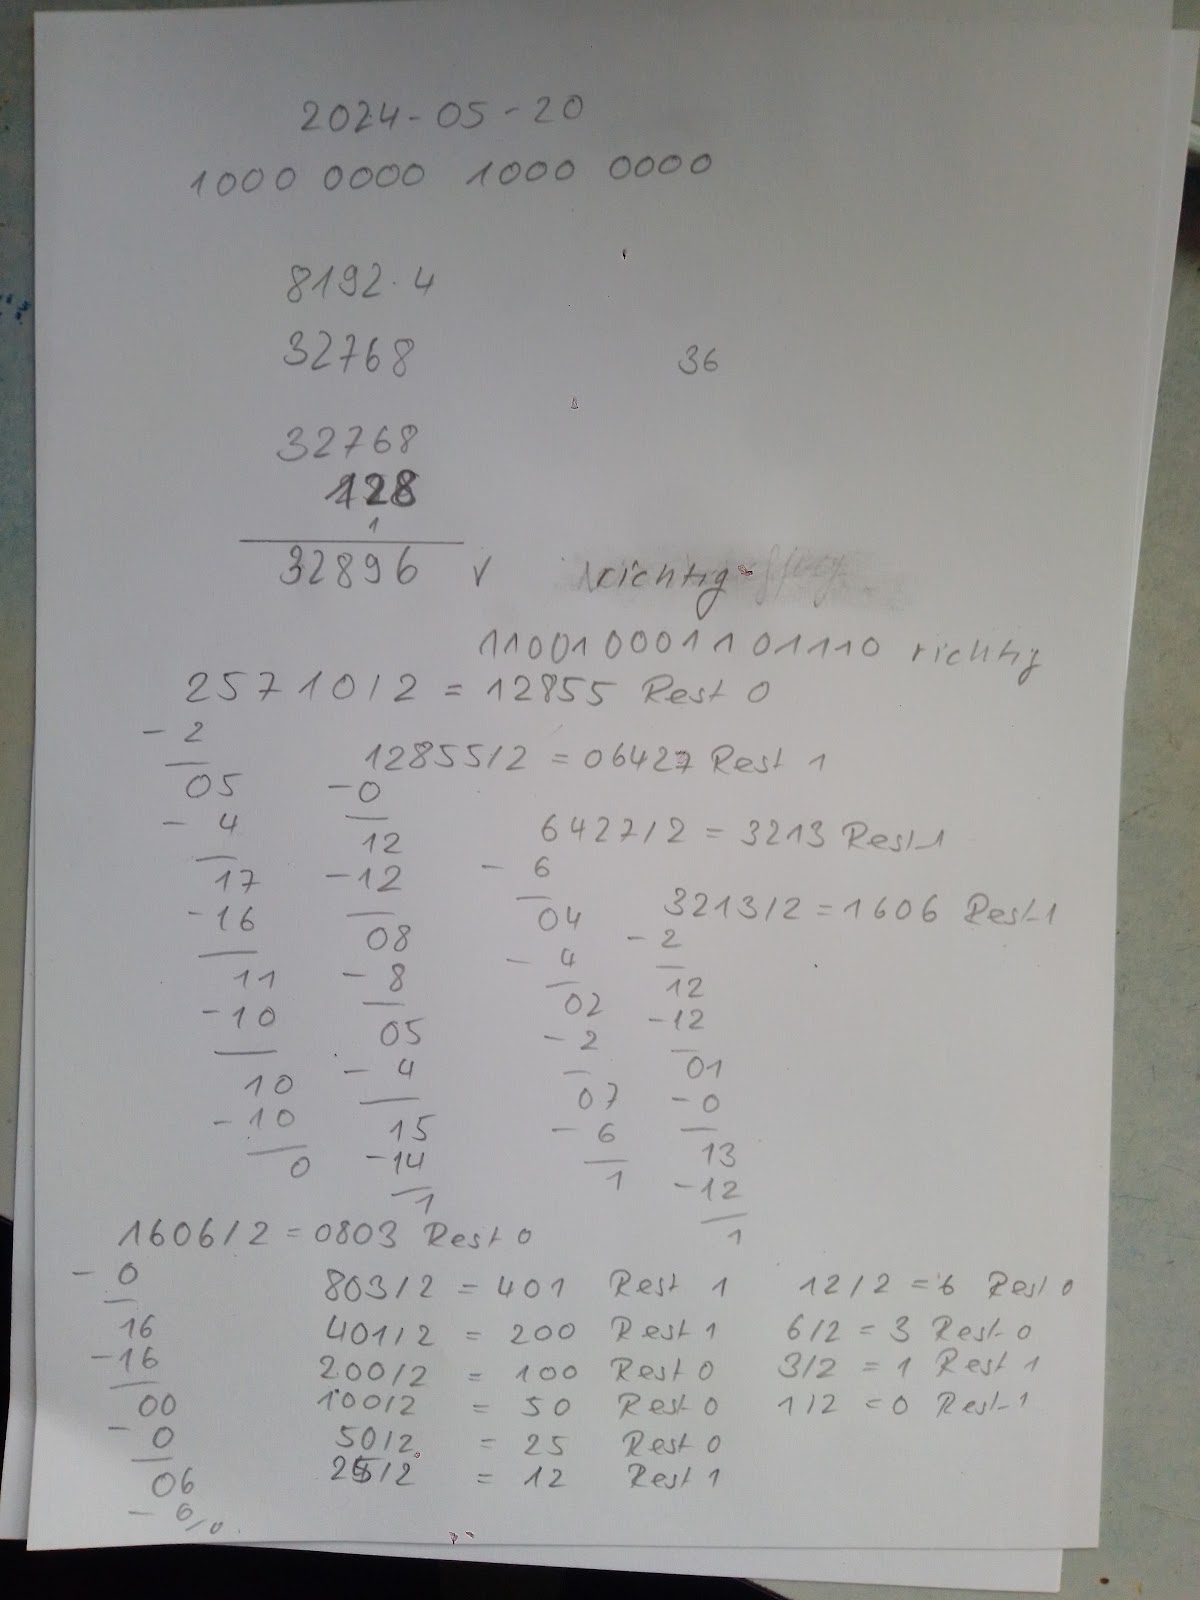 2024-05-20
1000 0000 1000 0000
8192·4
32768
36
32768
128
1
32896 √ richtig
1100100011011110 richtig
25710/2 = 12855 Rest 0
- 2
05
- 4
17
-16
11
-10
10
-10
0
12855/2 = 06427 Rest 1
-0
12
-12
08
- 8
05
- 4
15
-14
1
6427/2 = 3213 Rest 1
- 6
04
- 4
02
- 2
07
- 6
1
3213/2 = 1606 Rest 1
- 2
12
-12
01
-0
13
-12
1
1606/2 = 0803 Rest 0
- 0
16
-16
00
- 0
06
- 6
0
803/2 = 401 Rest 1
401/2 = 200 Rest 1
200/2 = 100 Rest 0
100/2 = 50 Rest 0
50/2 = 25 Rest 0
25/2 = 12 Rest 1
12/2 = 6 Rest 0
6/2 = 3 Rest 0
3/2 = 1 Rest 1
1/2 = 0 Rest 1